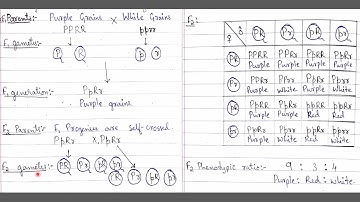 Parents:- Purple Grains x White Grains
PPRR pprr
F1 gametes:-
P R p r
F1 generation:- PpRr
Purple grains
F2 Parents:- F1 Progenies are self-crossed.
PpRr x PpRr
F2 gametes:- PR Pr pR pr
PR Pr pR pr
F2:
♀ ♂ PR Pr pR pr
PR PPRR PPRr PpRR PpRr
Purple Purple Purple Purple
Pr PPRr PPrr PpRr Pprr
Purple White Purple White
pR PpRR PpRr ppRR ppRr
Purple Purple Red Red
pr PpRr Pprr ppRr pprr
Purple White Red White
F2 Phenotypic ratio:- 9 : 3 : 4
Purple: Red: White